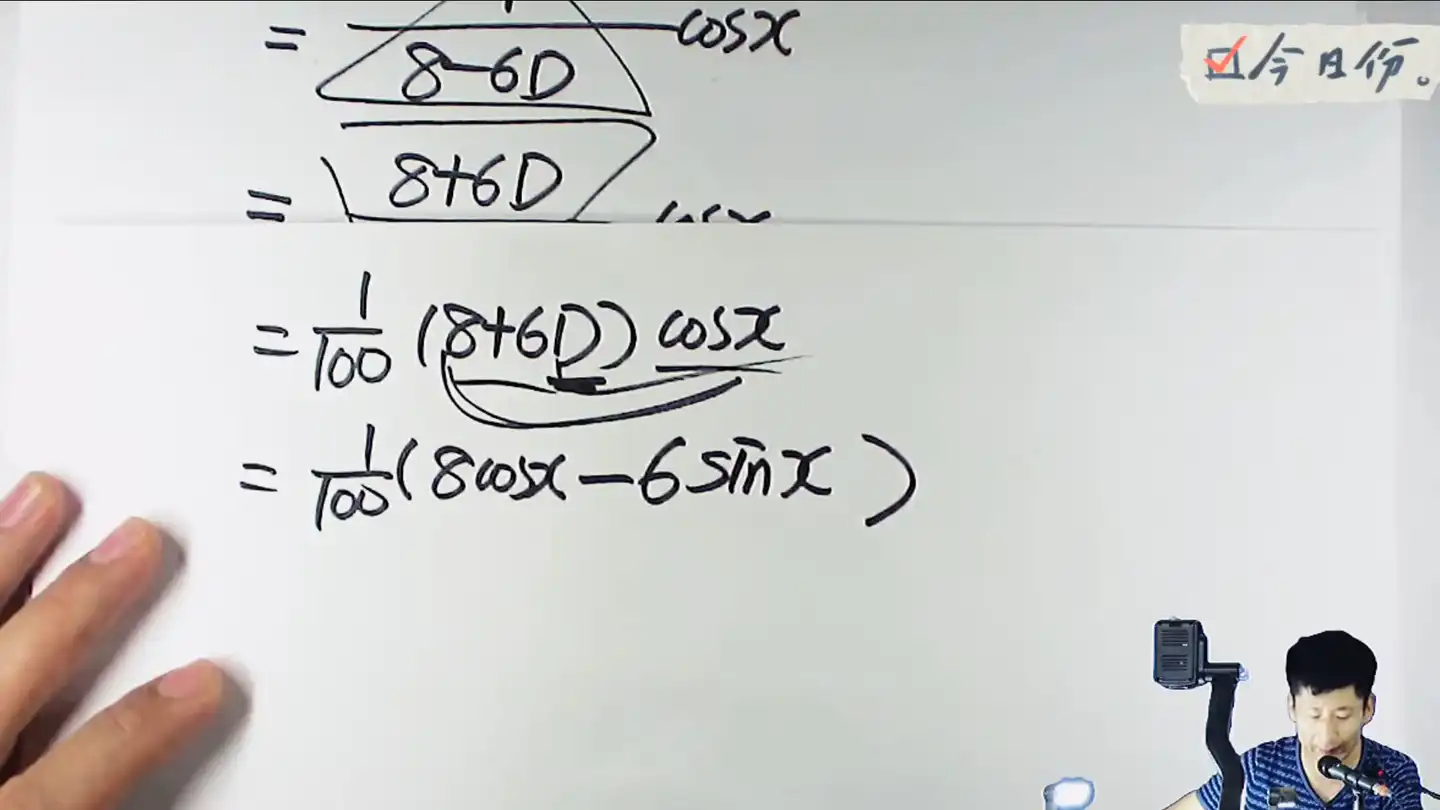 = 1/(8-6D) cosx
今日份。
= 8+6D cosx
= 1/100 (8+6D) cosx
= 1/100 (8cosx - 6sinx)